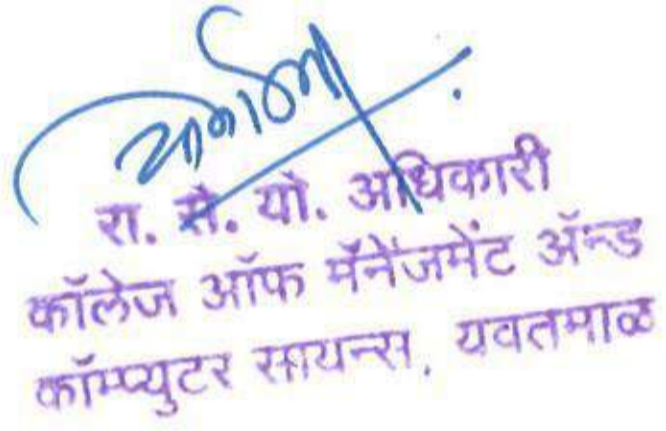 रा. से. यो. अधिकारी
कॉलेज ऑफ मॅनेंजमेंट ॲन्ड
कॉम्प्युटर सायन्स, यवतमाळ